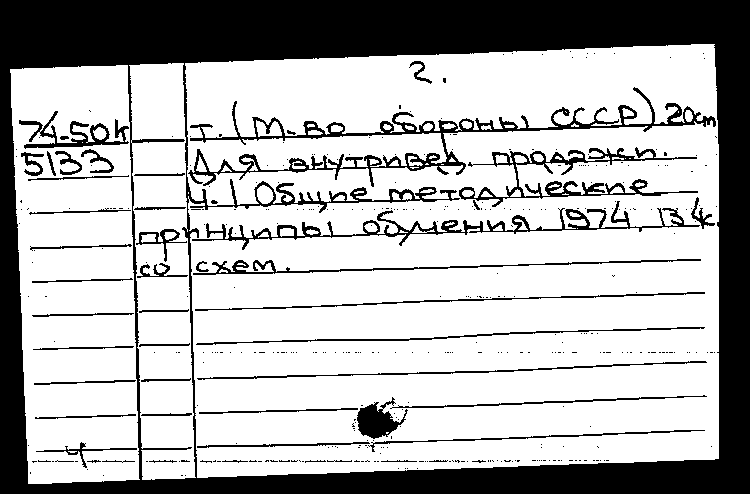 2.
74-50к т. (М-во обороны СССР). 20см
5133 Для внутривед. продажи.
Ч. 1. Общие методические
принципы обучения. 1974, 134с.
со схем.
ч